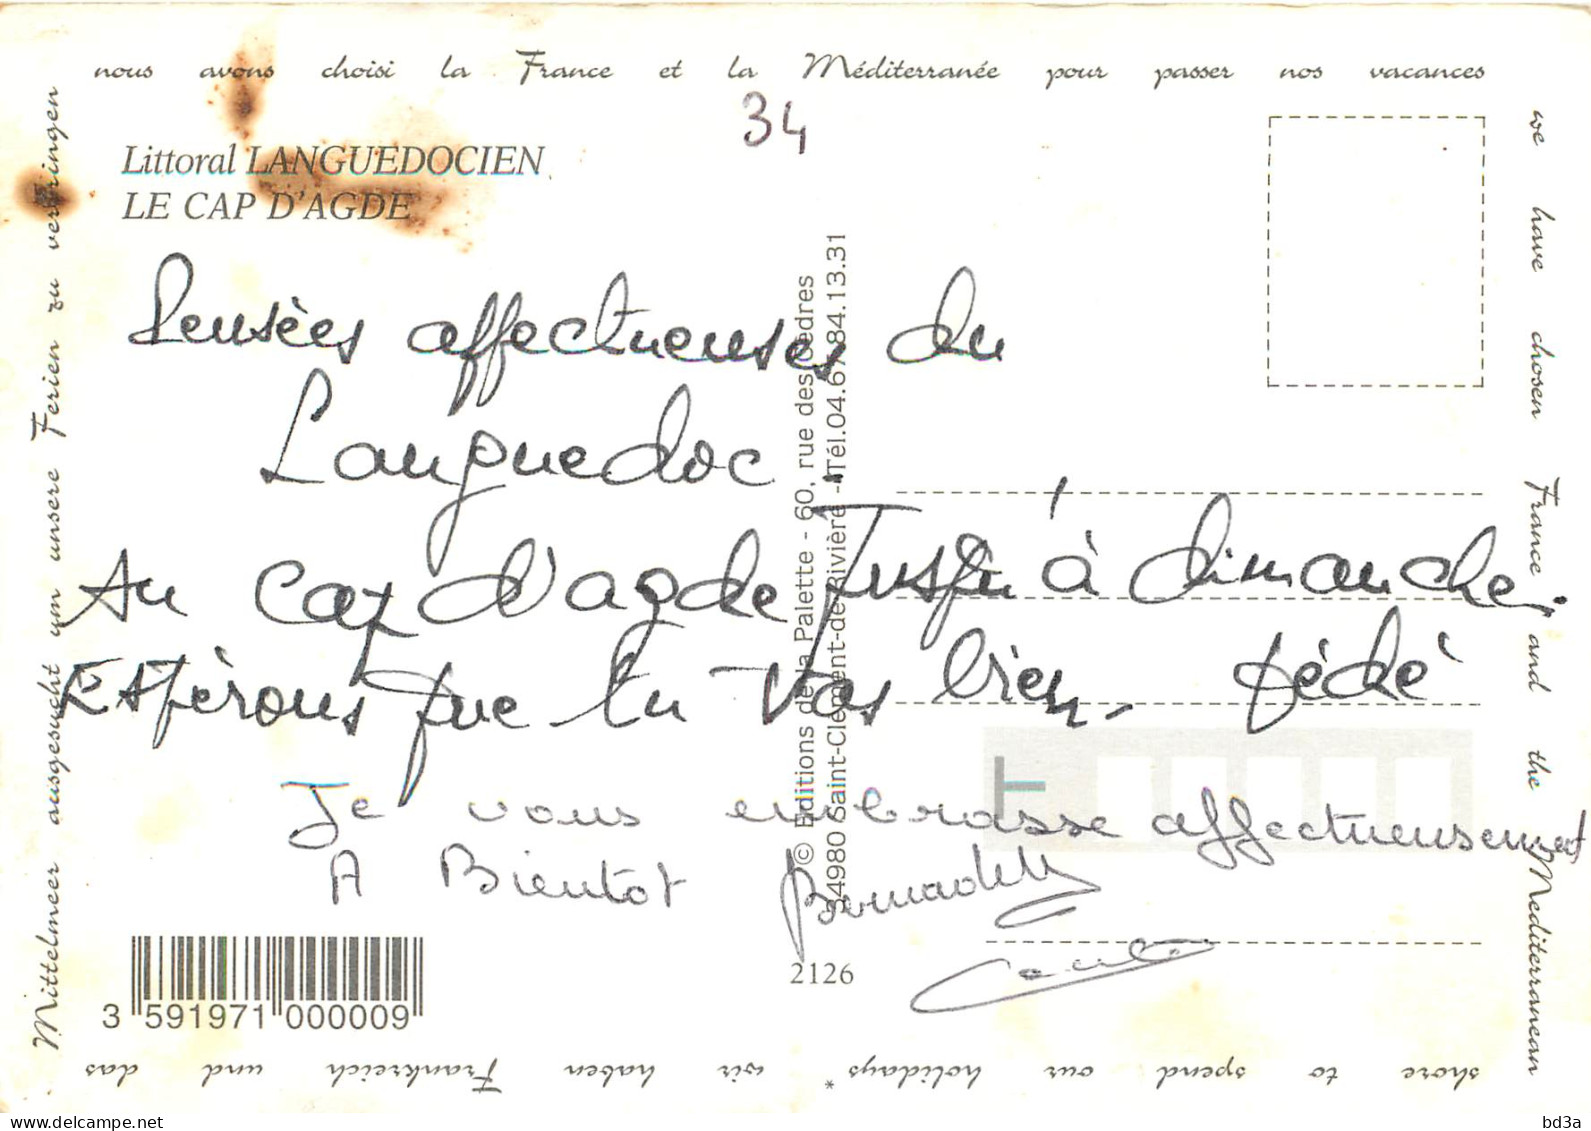 nous avons choisi la France et la Méditerranée pour passer nos vacances
34
Littoral LANGUEDOCIEN
LE CAP D'AGDE
Pensées affectueuses du
Languedoc
Au Cap d'agde Jusqu'à dimanche,
Espérons que tu vas bien. Dédé
Je vous embrasse affectueusement
A Bientot Bernadette
© Editions de la Palette - 60, rue des Cèdres
34980 Saint-Clément-de-Rivière - Tél.04.67.84.13.31
2126
3 591971 000009
we have chosen France and the Mediterranean
shore to spend our holidays *
wir haben Frankreich und das
Mittelmeer ausgesucht um unsere Ferien zu verbringen
bd3a